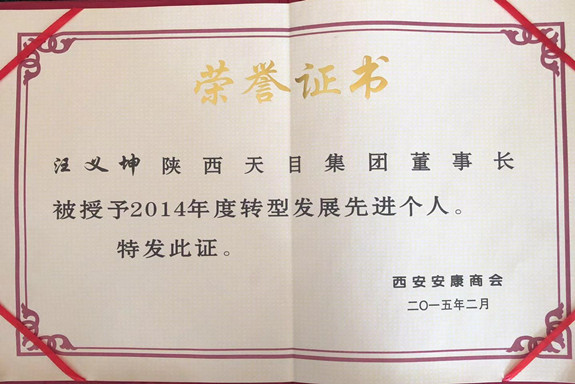 荣誉证书
汪义坤陕西天目集团董事长
被授予2014年度转型发展先进个人。
特发此证。
西安安康商会
二〇一五年二月